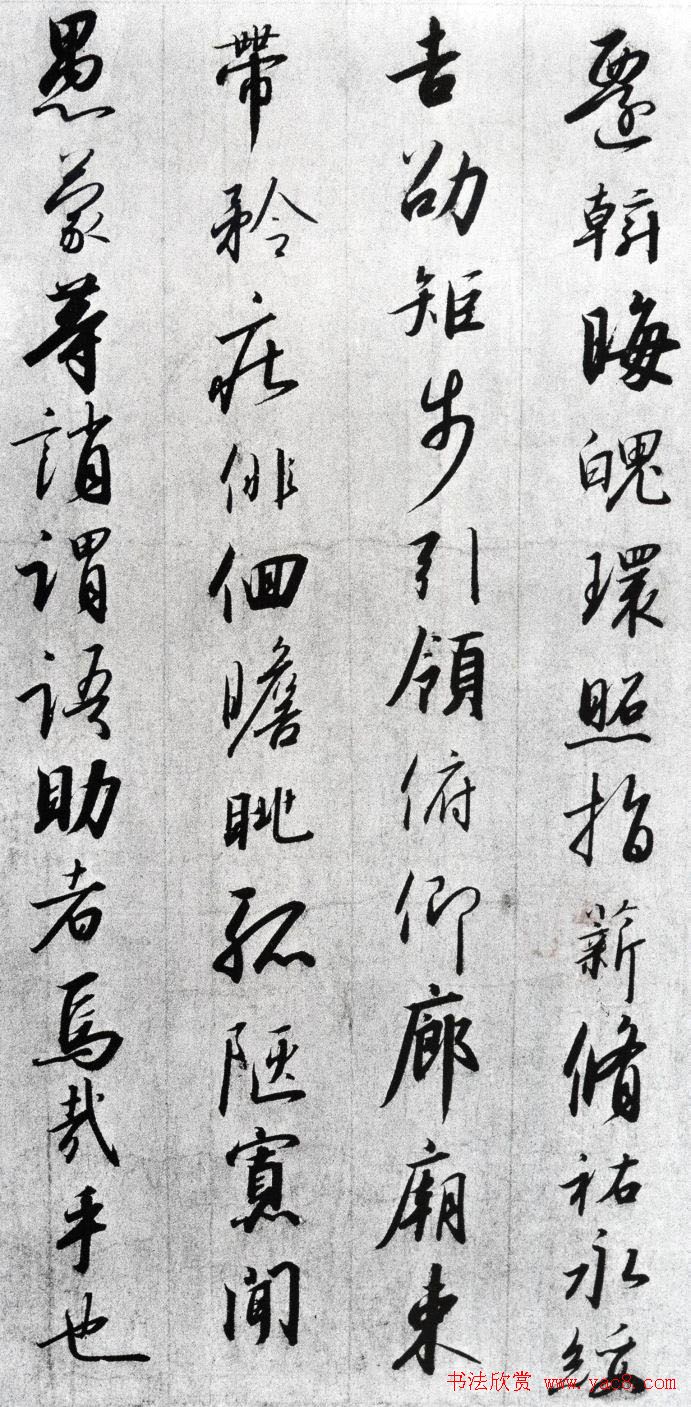 遷斡晦魄環照指薪脩祐永綏
吉劭矩步引領俯仰廊廟束
帶矜莊俳佪瞻眺孤陋寡聞
愚蒙等誚謂語助者焉哉乎也
书法欣赏 www.yac8.com